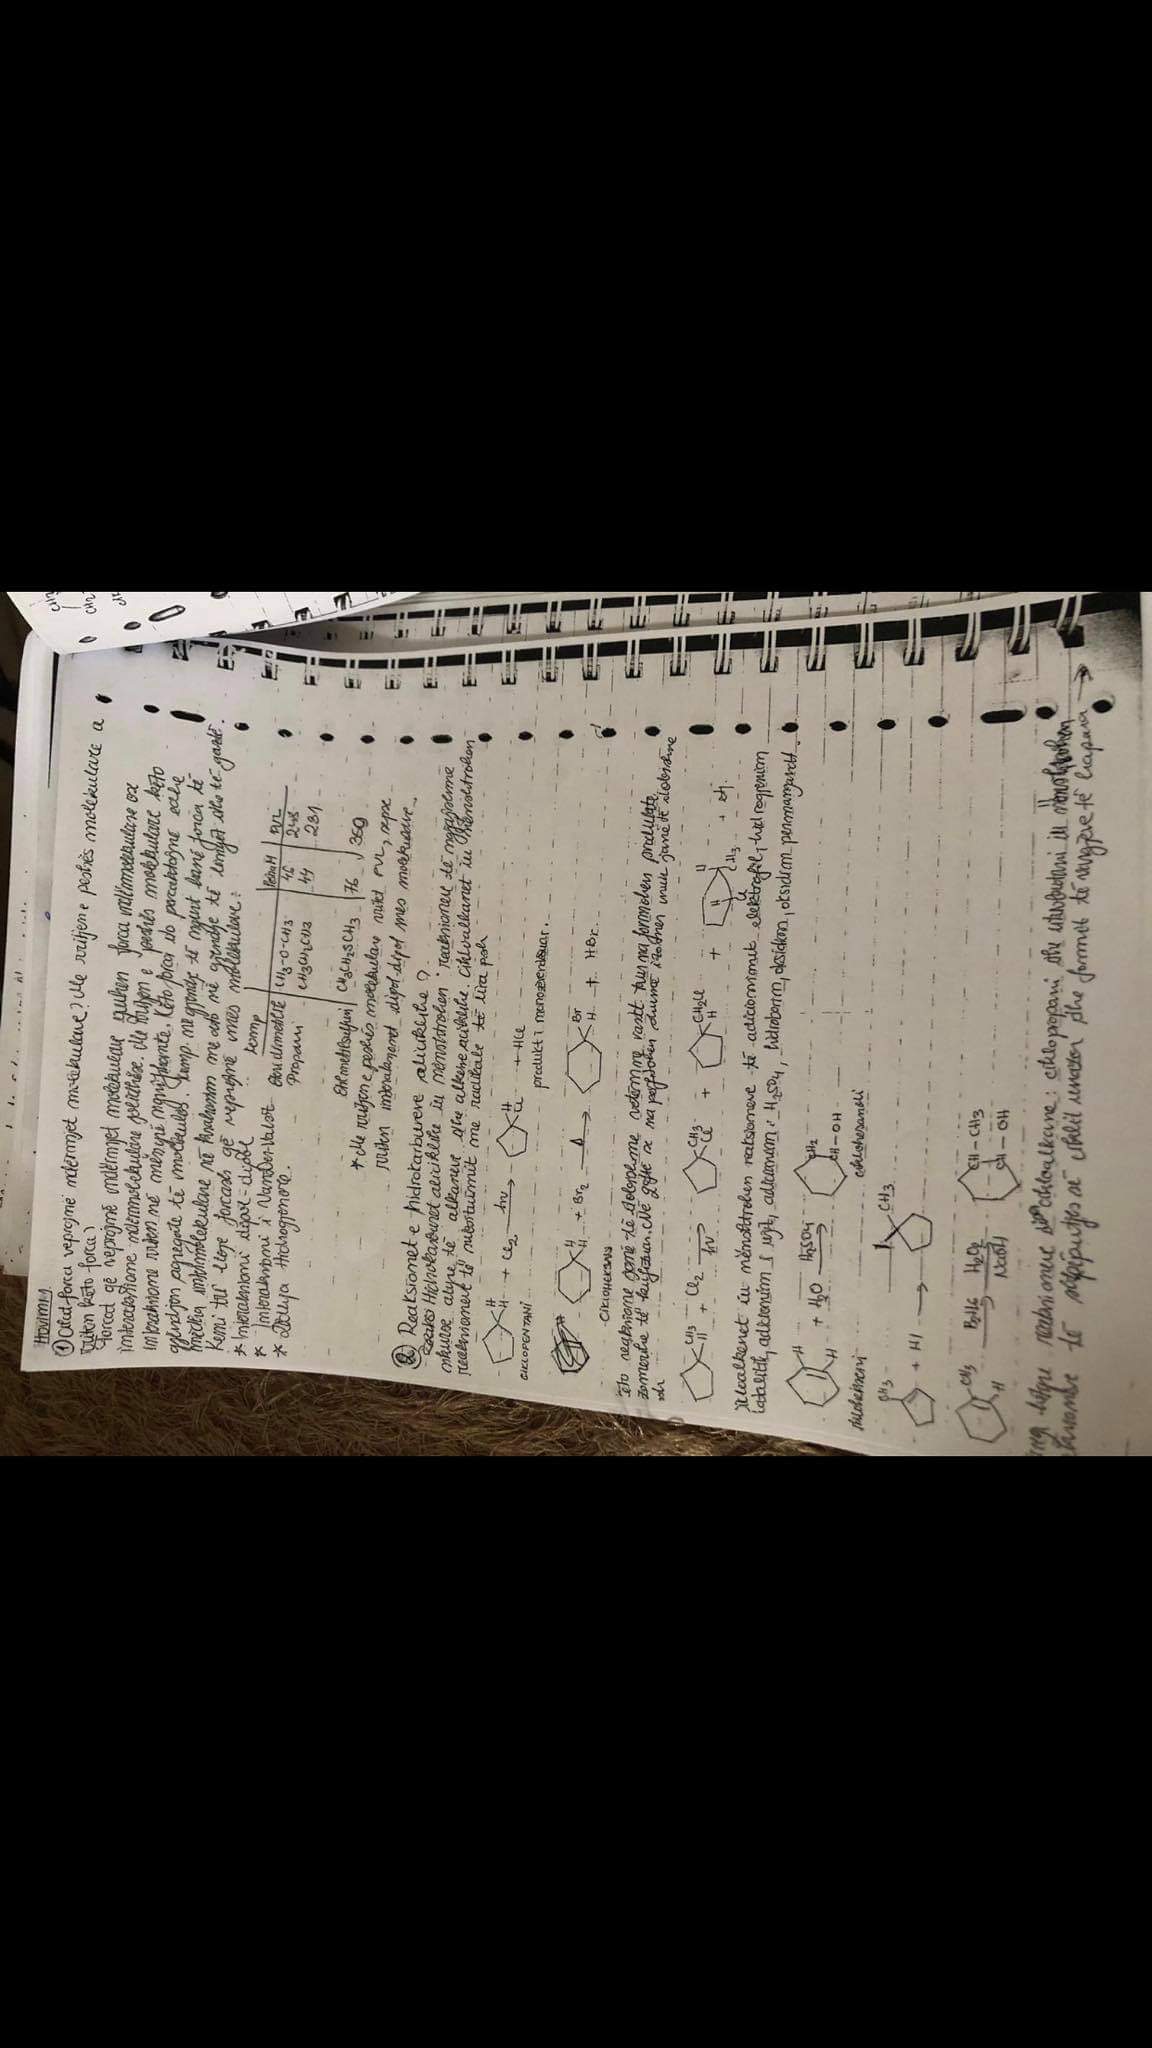 ① Cilat forca veprojnë ndërmjet molekulave? Me rritjen e peshës molekulare a
rriten këto forca?
Forcat që veprojnë ndërmjet molekulave quhen forca ndërmolekulare ose
interaksione ndërmolekulare jolidhëse. Me rritjen e peshës molekulare këto
interaksione rriten në mënyrë. Këto forca do percaktojnë edhe
gjendjen agregate të molekulës. Komp. në gjendje të ngurt kanë forca të
mëdha intermolekulare në krahasim me ato në gjendje të lëngët dhe të gaztë.
Kemi tri lloje forcash që veprojnë mes molekulave:
* Interaksioni dipol-dipol
* Interaksioni i VanDer-Valsit
* Lidhja Hidrogjenore.
Komp | | Pesha M | PVL
Eteri dimetilik | CH3-O-CH3 | 46 | 248
Propani | CH3CH2CH3 | 44 | 231
Etil metilsulfuri | CH3CH2SCH3 | 76 | 369
* Me rritjen e peshës molekulare rritet PVL, sepse
rriten interaksionet dipol-dipol mes molekulave.
② Reaksionet e hidrokarbureve aliciklike?
Hidrokarburet aliciklike iu nënshtrohen reaksioneve të ngjajshme
sikurse atyre të alkaneve dhe alkene aciklike. Cikloalkanet iu nënshtrohen
reaksioneve të me radikale të lira psh
H
H + Cl2 hν → H
Cl + HCl
CIKLOPENTANI
produkt i monozëvendësuar.
H
H + Br2 Δ → Br
H + HBr.
CIKLOHEKSANI
reaksione janë të dobishme vetëm në rastet kur na formohen produkte
izomerike të kufizuar. Në qoftë se na përfitohen shumë izomer nuk janë të dobishme
psh
CH3
H + Cl2 hν → CH3
Cl + CH2Cl
H + H H CH3 Cl + etj.
Cikloalkenet iu nënshtrohen reaksioneve të adicionimit elektrofil, hidrogjenim
katalitik, adicionim i ujit, adicionim i H2SO4, hidroborim, oksidim, oksidim permanganat.
H
H + H2O H2SO4 → CH2
CH-OH
ciklohekseni
cikloheksanoli
CH3 + HI → I CH3
CH3
H B2H6 → H2O2 NaOH → CH-CH3
CH-OH
këtyre reaksioneve cikloalkane: ciklopropani dhe ciklobutani iu nënshtrohen
të shkëputjes së ciklit unazor dhe formit të vargjeve të hapura →